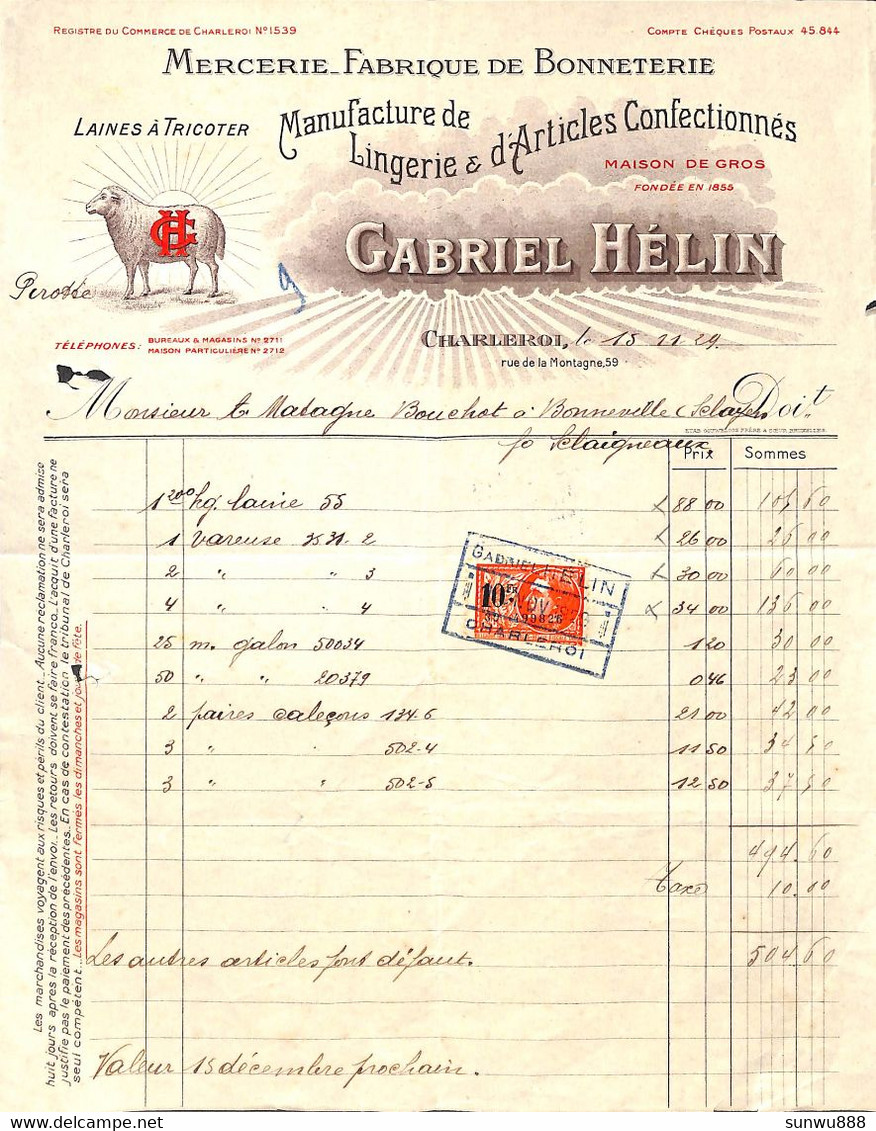 REGISTRE DU COMMERCE DE CHARLEROI Nº 1539
COMPTE CHÈQUES POSTAUX 45.844
MERCERIE_FABRIQUE DE BONNETERIE
LAINES À TRICOTER
Manufacture de
Lingerie & d'Articles Confectionnés
MAISON DE GROS
FONDÉE EN 1855
GH
GABRIEL HÉLIN
TÉLÉPHONES:
BUREAUX & MAGASINS Nº 2711
MAISON PARTICULIÈRE Nº 2712
CHARLEROI, le 15.11.29
rue de la Montagne, 59
Monsieur Matagne Bouchot à Bonneville (Sclayn Doit
Sclaigneaux
Prix Sommes
1 200 kg. laine 55 88 00 105 60
1 vareuse 3531.2 26 00 26 00
2 " " 3 30 00 60 00
4 " " 4 34 00 136 00
25 m. galon 50034 1 20 30 00
50 " " 20379 0 46 23 00
2 paires caleçons 134.6 21 00 42 00
3 " " 502-4 11 50 34 50
3 " " 502-5 12 50 37 50
GABRIEL HÉLIN
10 FR
CHARLEROI
494.60
Taxe 10.00
504.60
Les autres articles font défaut.
Valeur 15 décembre prochain.
Les marchandises voyagent aux risques et périls du client._ Aucune réclamation ne sera admise
huit jours après la réception de l'envoi._ Les retours doivent se faire franco. L'acquit d'une facture ne
justifie pas le paiement des précédentes._ En cas de contestation le tribunal de Charleroi sera
seul compétent._ Les magasins sont fermés les dimanches et jours de fête.
sunwu888